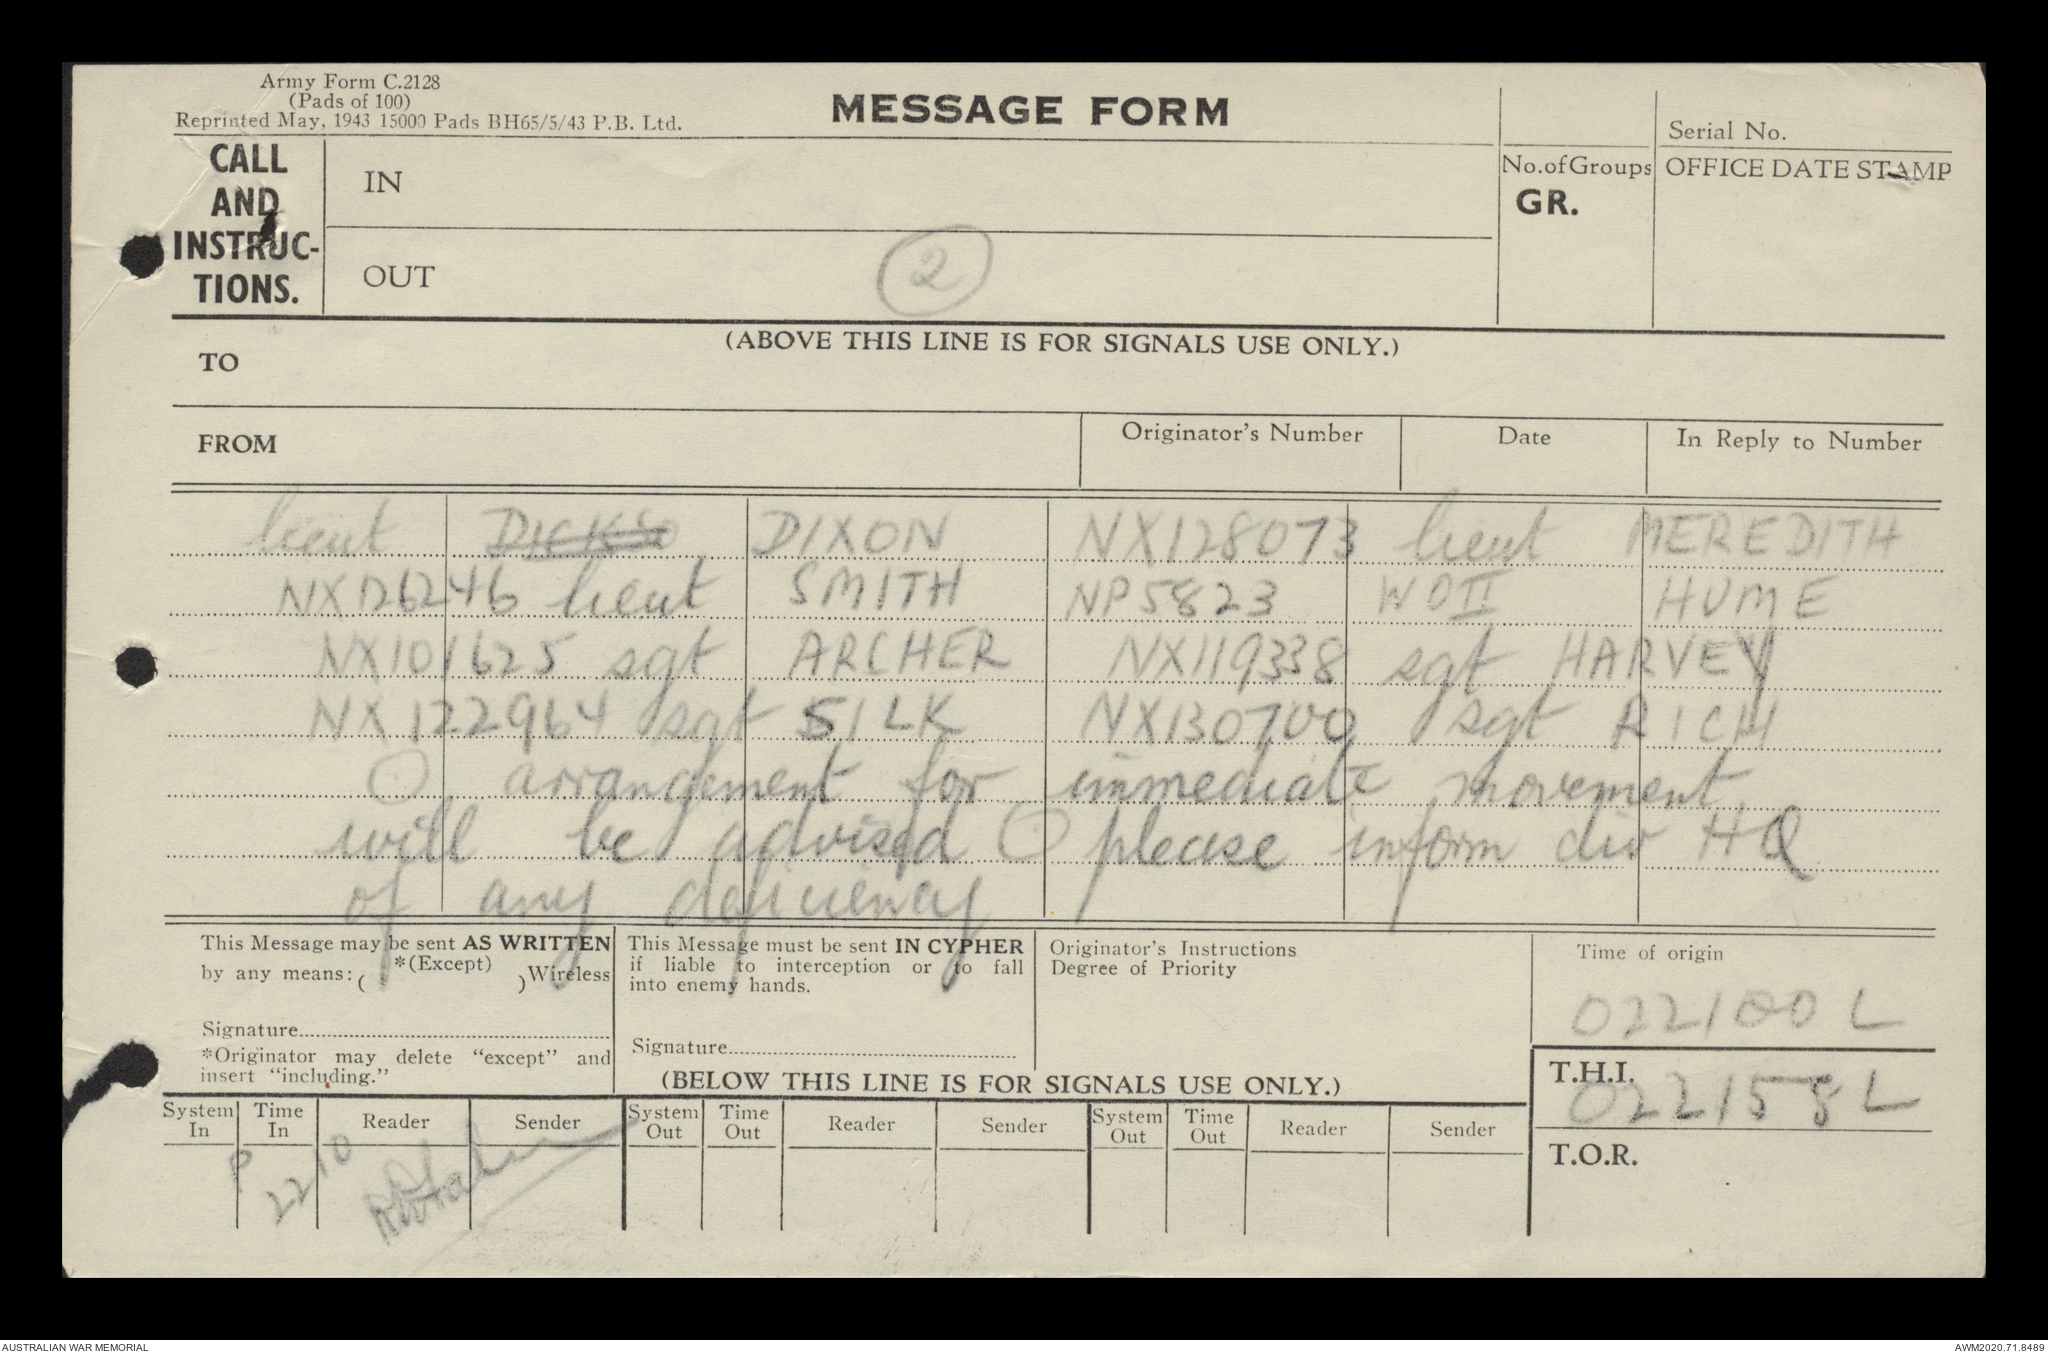 Army Form C.2128
(Pads of 100)
Reprinted May, 1943 15000 Pads BH65/5/43 P.B. Ltd.
MESSAGE FORM
Serial No.
CALL
AND
INSTRUC-
TIONS.
IN
OUT
2
No. of Groups
GR.
OFFICE DATE STAMP
(ABOVE THIS LINE IS FOR SIGNALS USE ONLY.)
TO
FROM
Originator's Number
Date
In Reply to Number
lieut DICKSO DIXON NX128073 lieut MEREDITH
NX126246 lieut SMITH NP5823 WOII HUME
NX101625 sgt ARCHER NX119338 sgt HARVEY
NX122964 sgt SILK NX130700 sgt RICH
O arrangement for immediate movement
will be advised O please inform div HQ
of any deficiency
This Message may be sent AS WRITTEN
by any means: ( *(Except) ) Wireless
Signature
*Originator may delete "except" and
insert "including."
This Message must be sent IN CYPHER
if liable to interception or to fall
into enemy hands.
Signature
Originator's Instructions
Degree of Priority
Time of origin
022100 L
(BELOW THIS LINE IS FOR SIGNALS USE ONLY.)
T.H.I.
022158 L
T.O.R.
System In
Time In
Reader
Sender
System Out
Time Out
Reader
Sender
System Out
Time Out
Reader
Sender
P 2210
AUSTRALIAN WAR MEMORIAL
AWM2020.71.8489